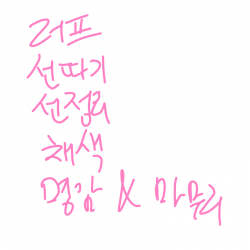 러프
선따기
선정리
채색
명암 & 마무리